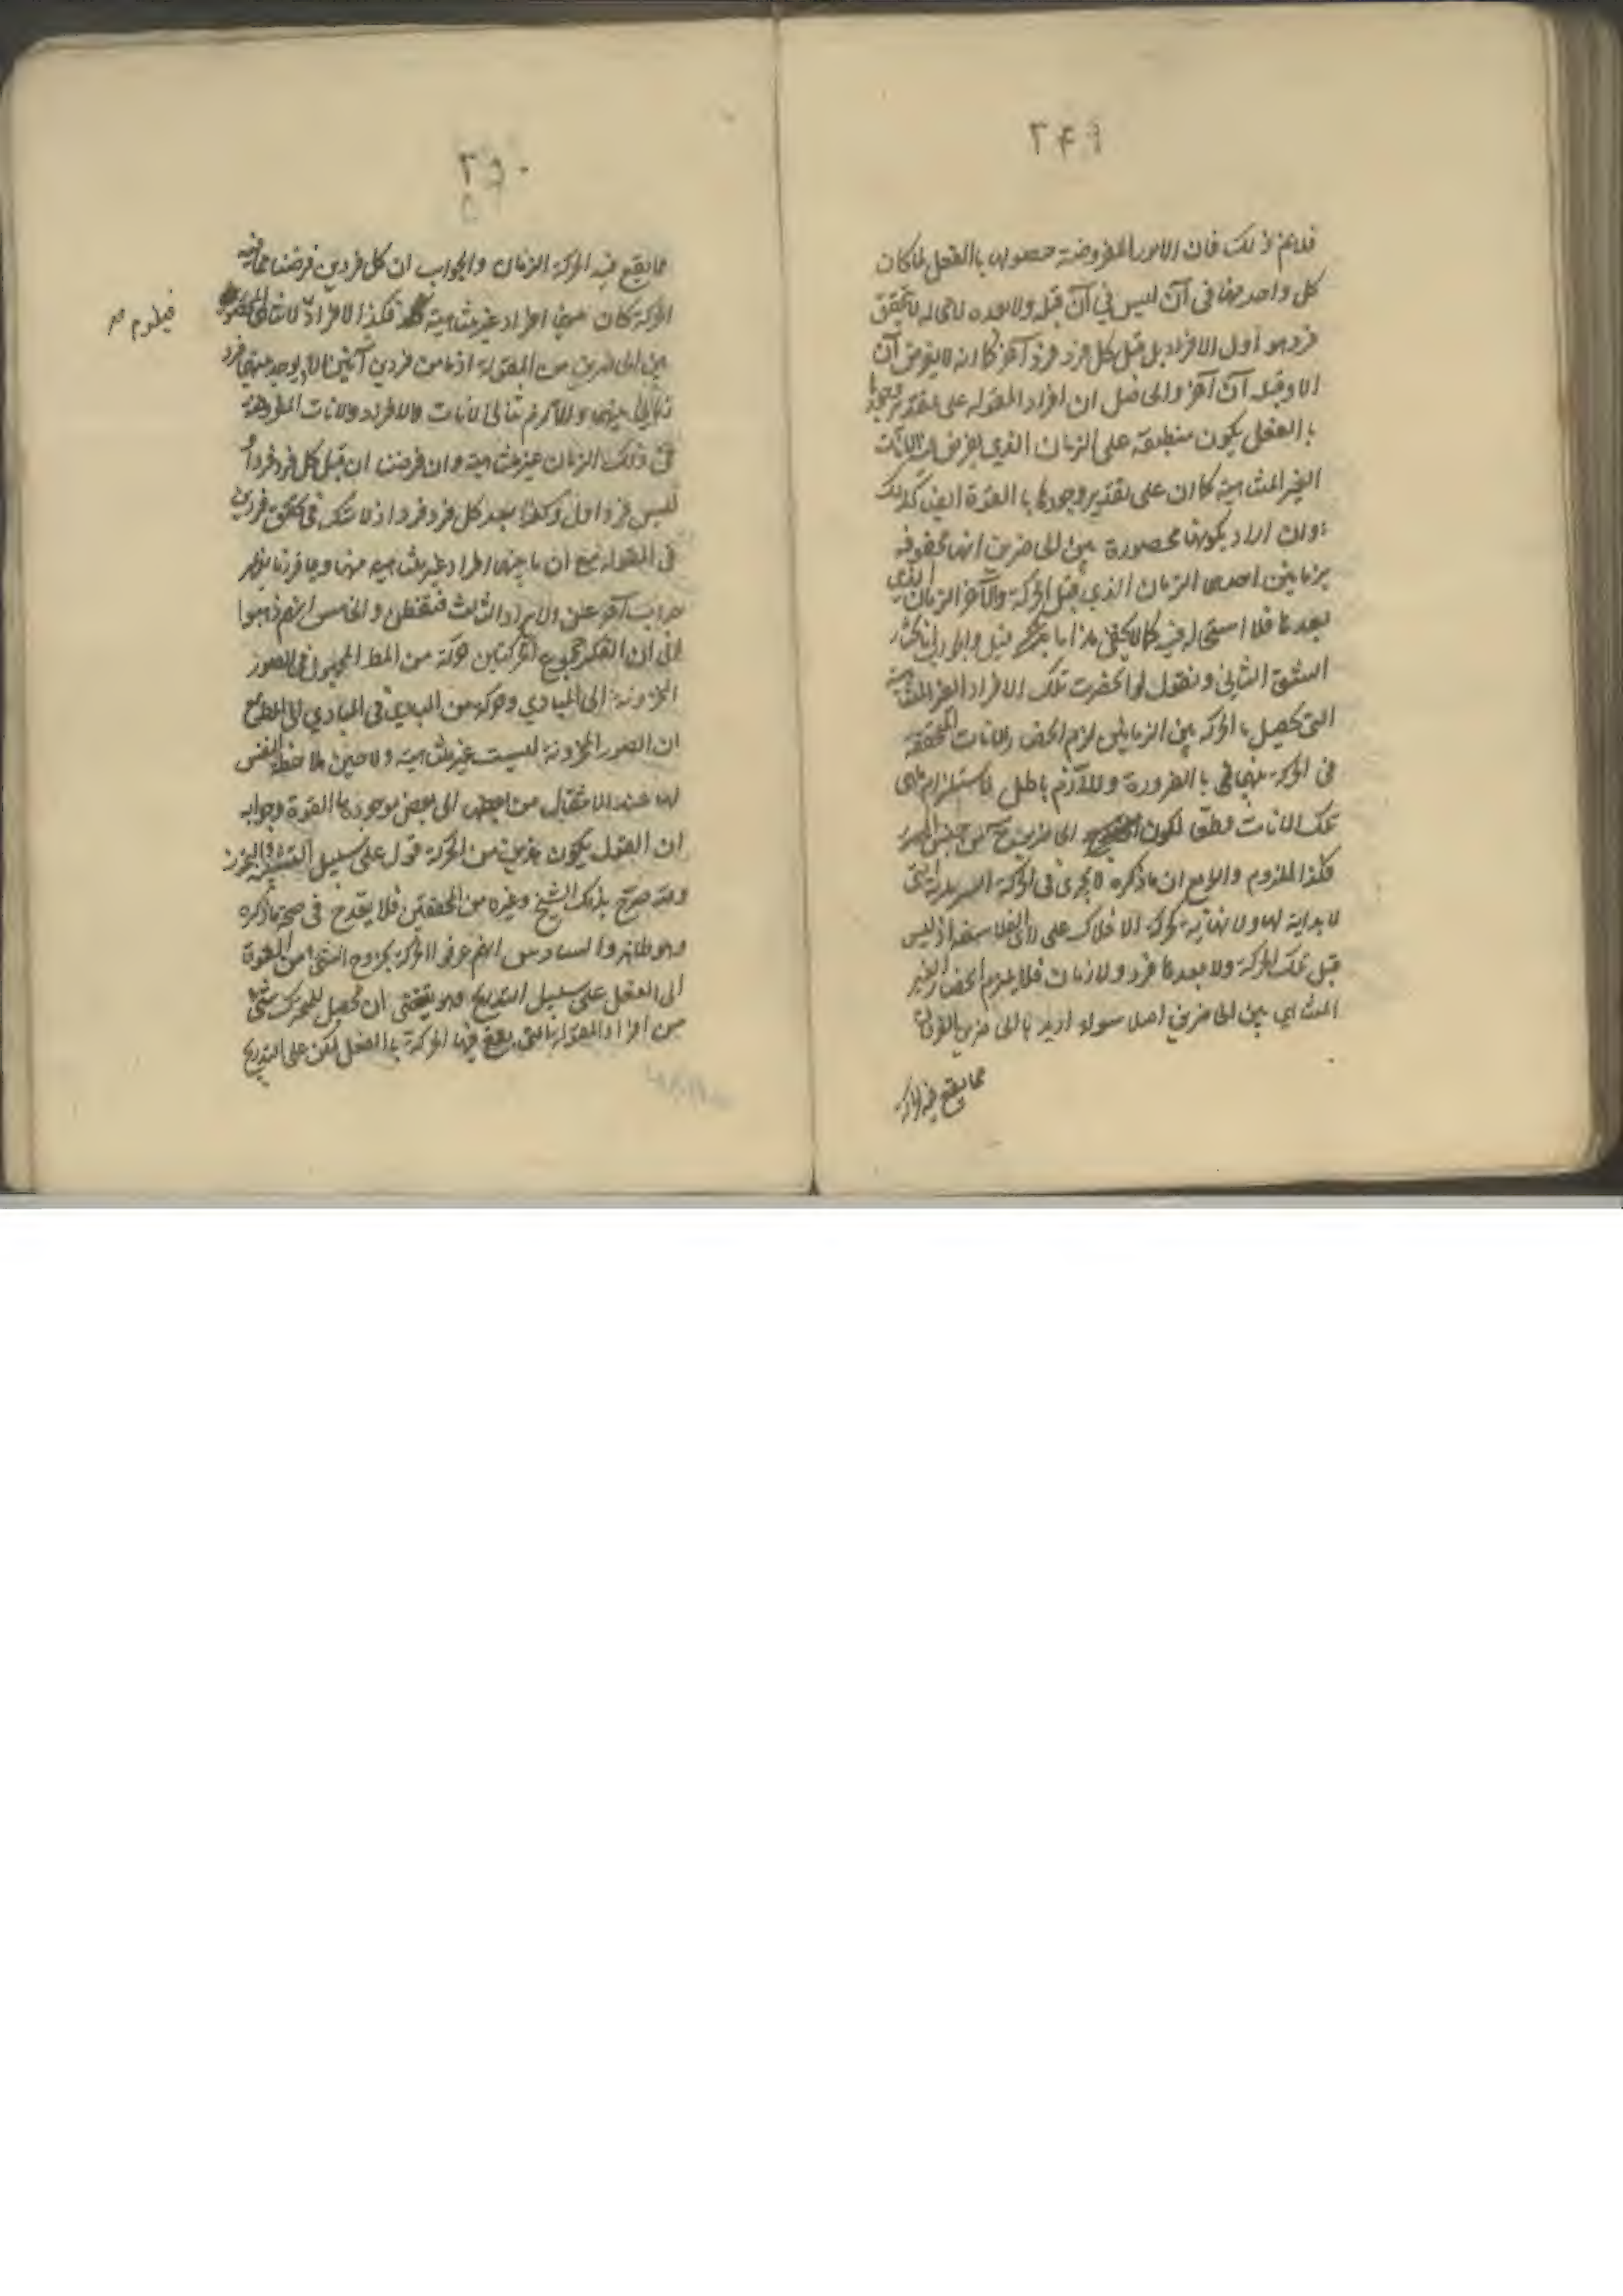 ٢٤٩
فلانم ذلك فان الامور المفروضة حصولها بالفعل لما كان
كل واحد منها فى آن ليس في آن قبله ولا بعده لا محاله لا يتحقق
فرد هو اول الافراد بل قبل كل فرد فرد آخر كما انه لا يفرض آن
الا وقبله آن آخر والحاصل ان افراد المقوله على تقدير وجودها
بالفعل يكون منطبقة على الزمان الذي يفرض الآنات
الغير المتناهية كما ان على تقدير وجودها بالقوة ايضا كذلك
وان اراد بكونها محصورة بين الحاضرين انها محفوفه
بزمانين احدهما الزمان الذي قبل الحركة والآخر الزمان الذي
بعدها فلا استحاله فيه كما لا يخفى هذا ما قيل والجواب انا نختار
الشق الثاني ونقول لو انحصرت تلك الافراد الغير المتناهية
التى تحصل بالحركة بين الزمانين لزم انحصار الانات المتحققة
فى الحركة بينهما بالضرورة واللازم باطل لاستلزام تناهى
تلك الانات مطلقا لكون الحاضرين
فكذا الملزوم والامع ان ما ذكره لا يجرى فى الحركة السرمدية التى
لا بداية لها ولا نهاية كحركة الافلاك على رأى الفلاسفة اذ ليس
قبل تلك الحركة ولا بعدها فرد ولا زمان فلا يلزم انحصار الغير
المتناهي بين الحاضرين اصلا سواء اريد بالحاضرين
مما يقع فيه الحركة
٢٥٠
مما يقع فيه الحركة الزمان والجواب ان كل فردين فرضنا مما فيه
الحركة كان بينهما افراد غير متناهية فكذا الافراد
فيلزم
بين الحاضرين من المقولة اذ ما من فردين آنيين الا يوجد بينهما فرد
زمانى بينهما والآنات والافراد والآنات المفروضة
فى ذلك الزمان غير متناهية وان فرضنا ان قبل كل فرد فردا
ليس فرد اول وكذا بعد كل فرد فردا اذ لا شك فى تحقق فردين
فى المقولة مع ان ما بينهما افراد غير متناهية منها وبما قررنا يظهر
جواب آخر عن الايراد الثالث فتفطن والخامس انهم ذهبوا
الى ان الفكر مجموع الحركتين حركة من المطلوب فى الصور
المخزونة الى المبادي وحركة من المبادي فى المبادي الى المطلوب مع
ان الصور المخزونة ليست غير متناهية ولا حين ملاحظة النفس
لها عند الانتقال من بعضها الى بعض موجودة بالقوة وجوابه
ان القول بكون هذين من الحركة قول على سبيل التشبيه والتجوز
وقد صرح بذلك الشيخ وغيره من المحققين فلا يقدح فى صحة ما ذكره
وهو ظاهر والسادس انهم عرفوا الحركة بخروج الشئ من القوة
الى الفعل على سبيل التدريج وهو يقتضى ان تحصل للمتحرك شئ
من افراد المقولة التى يقع فيها الحركة بالفعل لكن على التدريج